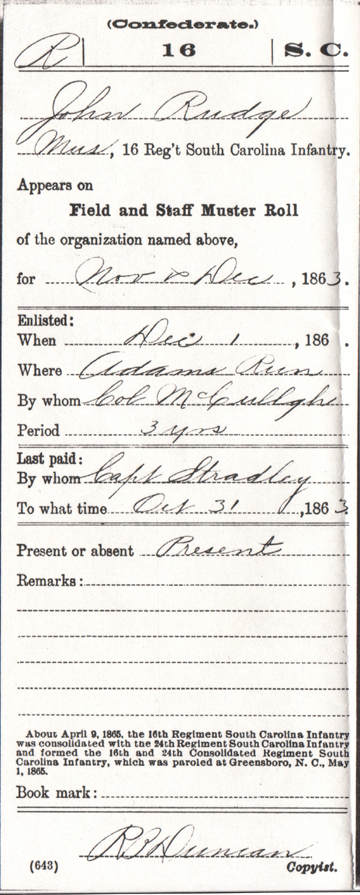 (Confederate.)
R | 16 | S. C.
John Rudge
Mus, 16 Reg't South Carolina Infantry.
Appears on
Field and Staff Muster Roll
of the organization named above,
for Nov & Dec, 1863.
Enlisted:
When Dec 1, 186 .
Where Adams Run
By whom Col McCullgh
Period 3 yrs
Last paid:
By whom Capt Stradley
To what time Oct 31, 1863
Present or absent Present
Remarks:
About April 9, 1865, the 16th Regiment South Carolina Infantry
was consolidated with the 24th Regiment South Carolina Infantry
and formed the 16th and 24th Consolidated Regiment South
Carolina Infantry, which was paroled at Greensboro, N. C., May
1, 1865.
Book mark:
R B Duncan
(643) Copyist.